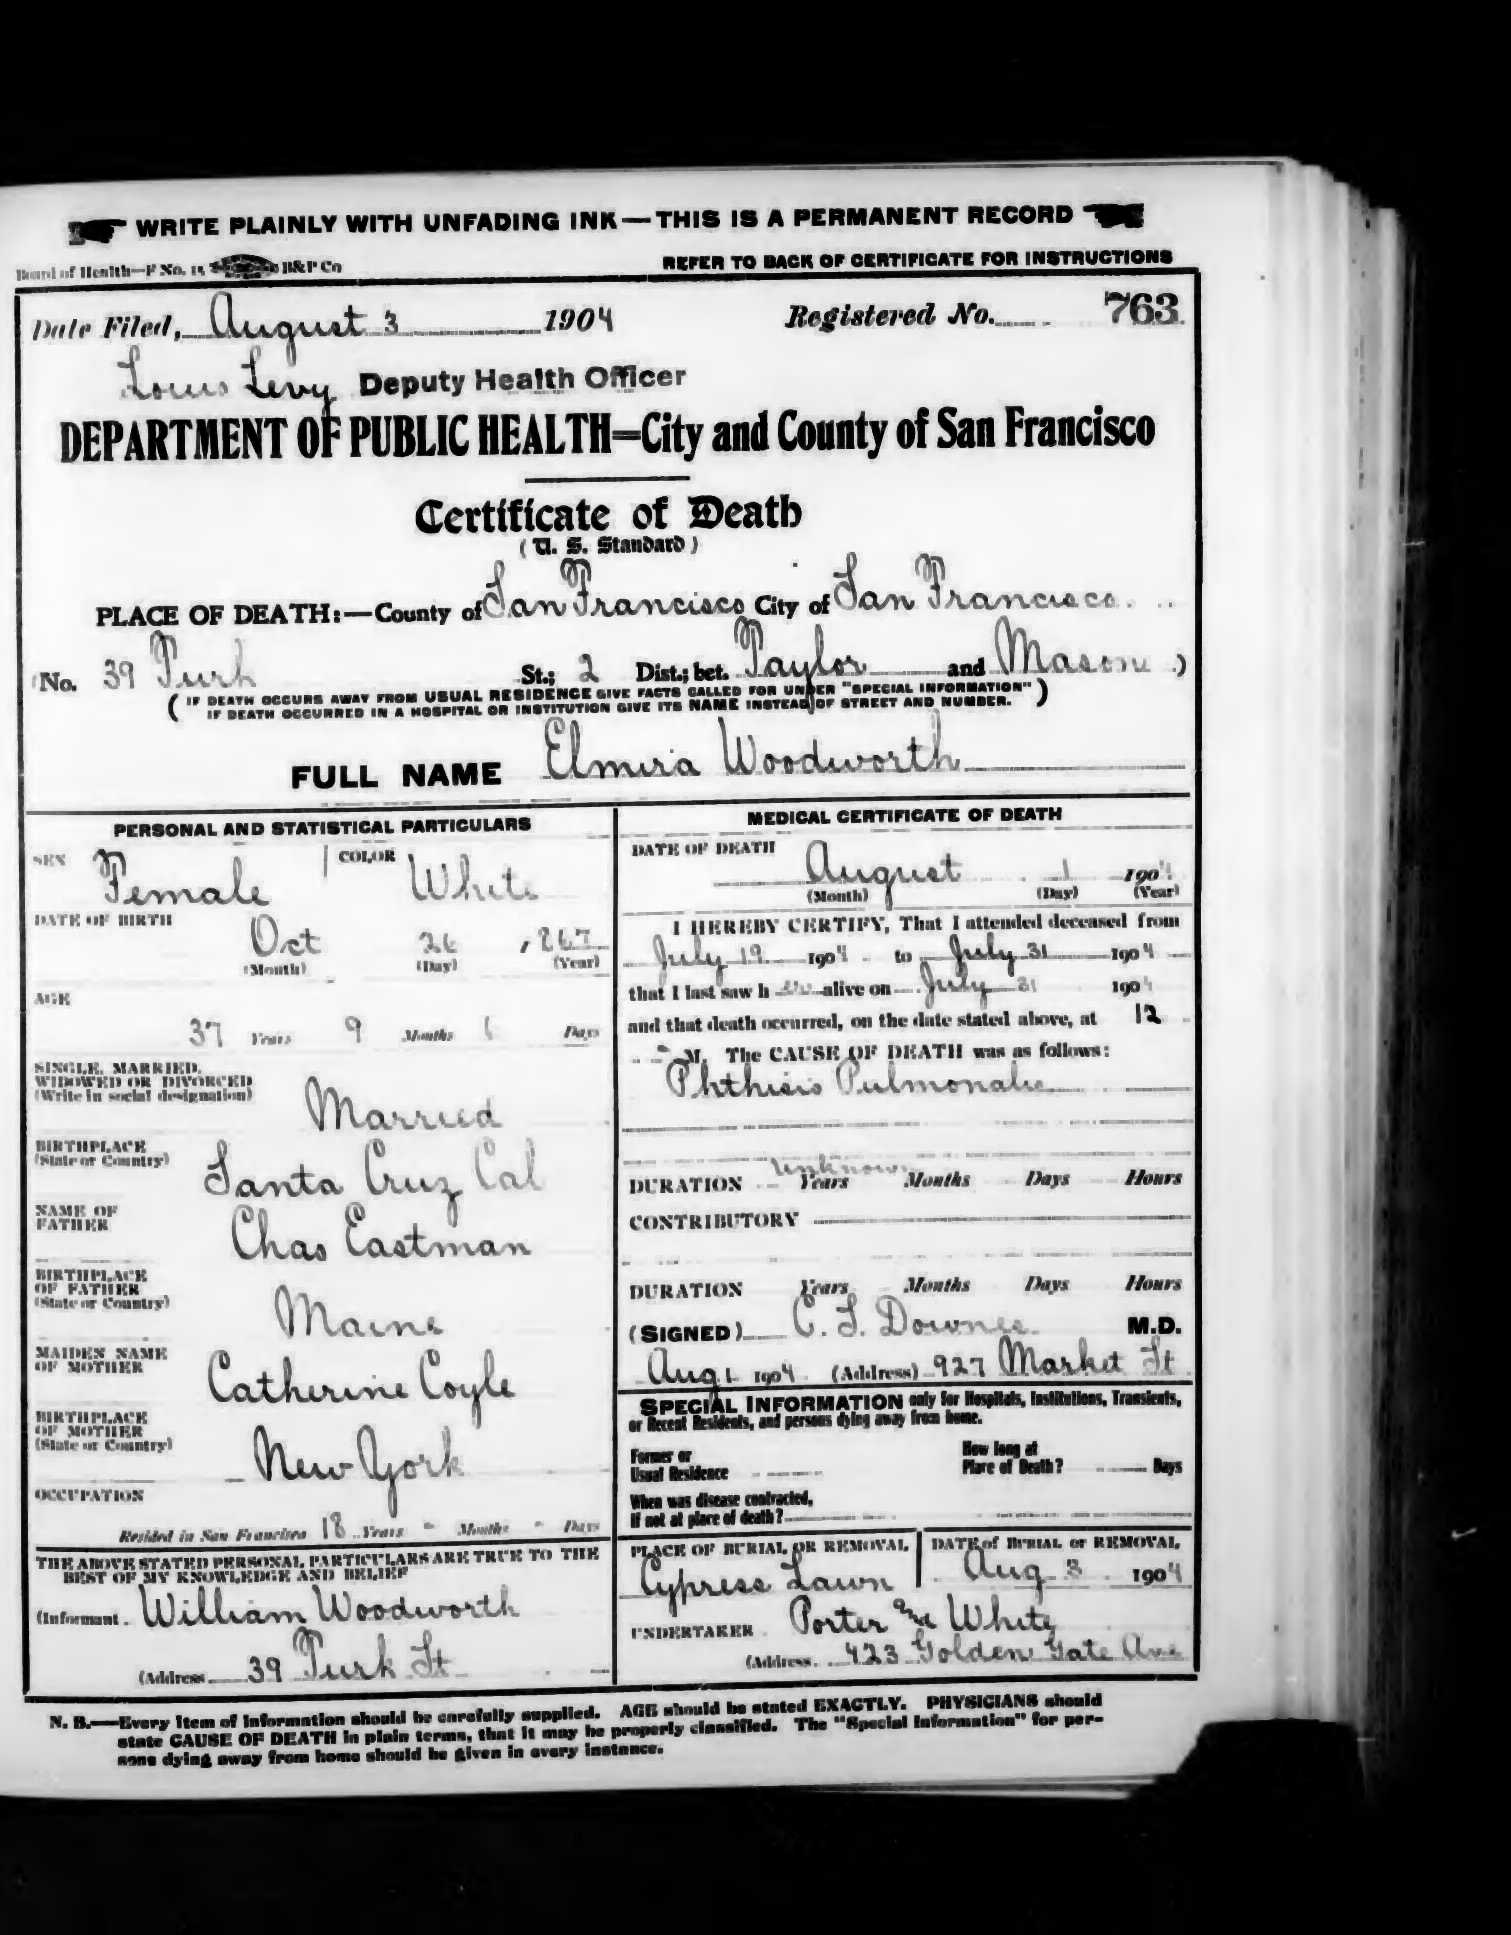 WRITE PLAINLY WITH UNFADING INK—THIS IS A PERMANENT RECORD
Board of Health—F No. 11 B&P Co REFER TO BACK OF CERTIFICATE FOR INSTRUCTIONS
Date Filed, August 3 1904 Registered No. 763
Louis Levy Deputy Health Officer
DEPARTMENT OF PUBLIC HEALTH=City and County of San Francisco
Certificate of Death
(U. S. Standard)
PLACE OF DEATH:—County of San Francisco City of San Francisco
(No. 39 Turk St.; 2 Dist.; bet. Taylor and Mason )
( IF DEATH OCCURS AWAY FROM USUAL RESIDENCE GIVE FACTS CALLED FOR UNDER "SPECIAL INFORMATION" )
IF DEATH OCCURRED IN A HOSPITAL OR INSTITUTION GIVE ITS NAME INSTEAD OF STREET AND NUMBER.
FULL NAME Elmira Woodworth
PERSONAL AND STATISTICAL PARTICULARS
SEX Female COLOR White
DATE OF BIRTH
Oct 26 , 867
(Month) (Day) (Year)
AGE
37 Years 9 Months 6 Days
SINGLE, MARRIED,
WIDOWED OR DIVORCED
(Write in social designation)
Married
BIRTHPLACE
(State or Country)
Santa Cruz Cal
NAME OF
FATHER
Chas Eastman
BIRTHPLACE
OF FATHER
(State or Country)
Maine
MAIDEN NAME
OF MOTHER
Catherine Coyle
BIRTHPLACE
OF MOTHER
(State or Country)
New York
OCCUPATION
Resided in San Francisco 18 Years - Months - Days
THE ABOVE STATED PERSONAL PARTICULARS ARE TRUE TO THE
BEST OF MY KNOWLEDGE AND BELIEF
(Informant William Woodworth
(Address 39 Turk St
MEDICAL CERTIFICATE OF DEATH
DATE OF DEATH
August 1 1904
(Month) (Day) (Year)
I HEREBY CERTIFY, That I attended deceased from
July 19 1904 to July 31 1904
that I last saw h er alive on July 31 1904
and that death occurred, on the date stated above, at 12
M. The CAUSE OF DEATH was as follows:
Phthisis Pulmonalis
unknown
DURATION Years Months Days Hours
CONTRIBUTORY
DURATION Years Months Days Hours
(SIGNED) C. F. Downes M.D.
Aug 1 1904 (Address) 927 Market St
SPECIAL INFORMATION only for Hospitals, Institutions, Transients,
or Recent Residents, and persons dying away from home.
Former or
Usual Residence
How long at
Place of Death? Days
When was disease contracted,
If not at place of death?
PLACE OF BURIAL OR REMOVAL DATE of BURIAL or REMOVAL
Cypress Lawn Aug 3 1904
UNDERTAKER Porter and White
(Address 423 Golden Gate Ave
N. B.—Every item of information should be carefully supplied. AGE should be stated EXACTLY. PHYSICIANS should
state CAUSE OF DEATH in plain terms, that it may be properly classified. The "Special Information" for per-
sons dying away from home should be given in every instance.